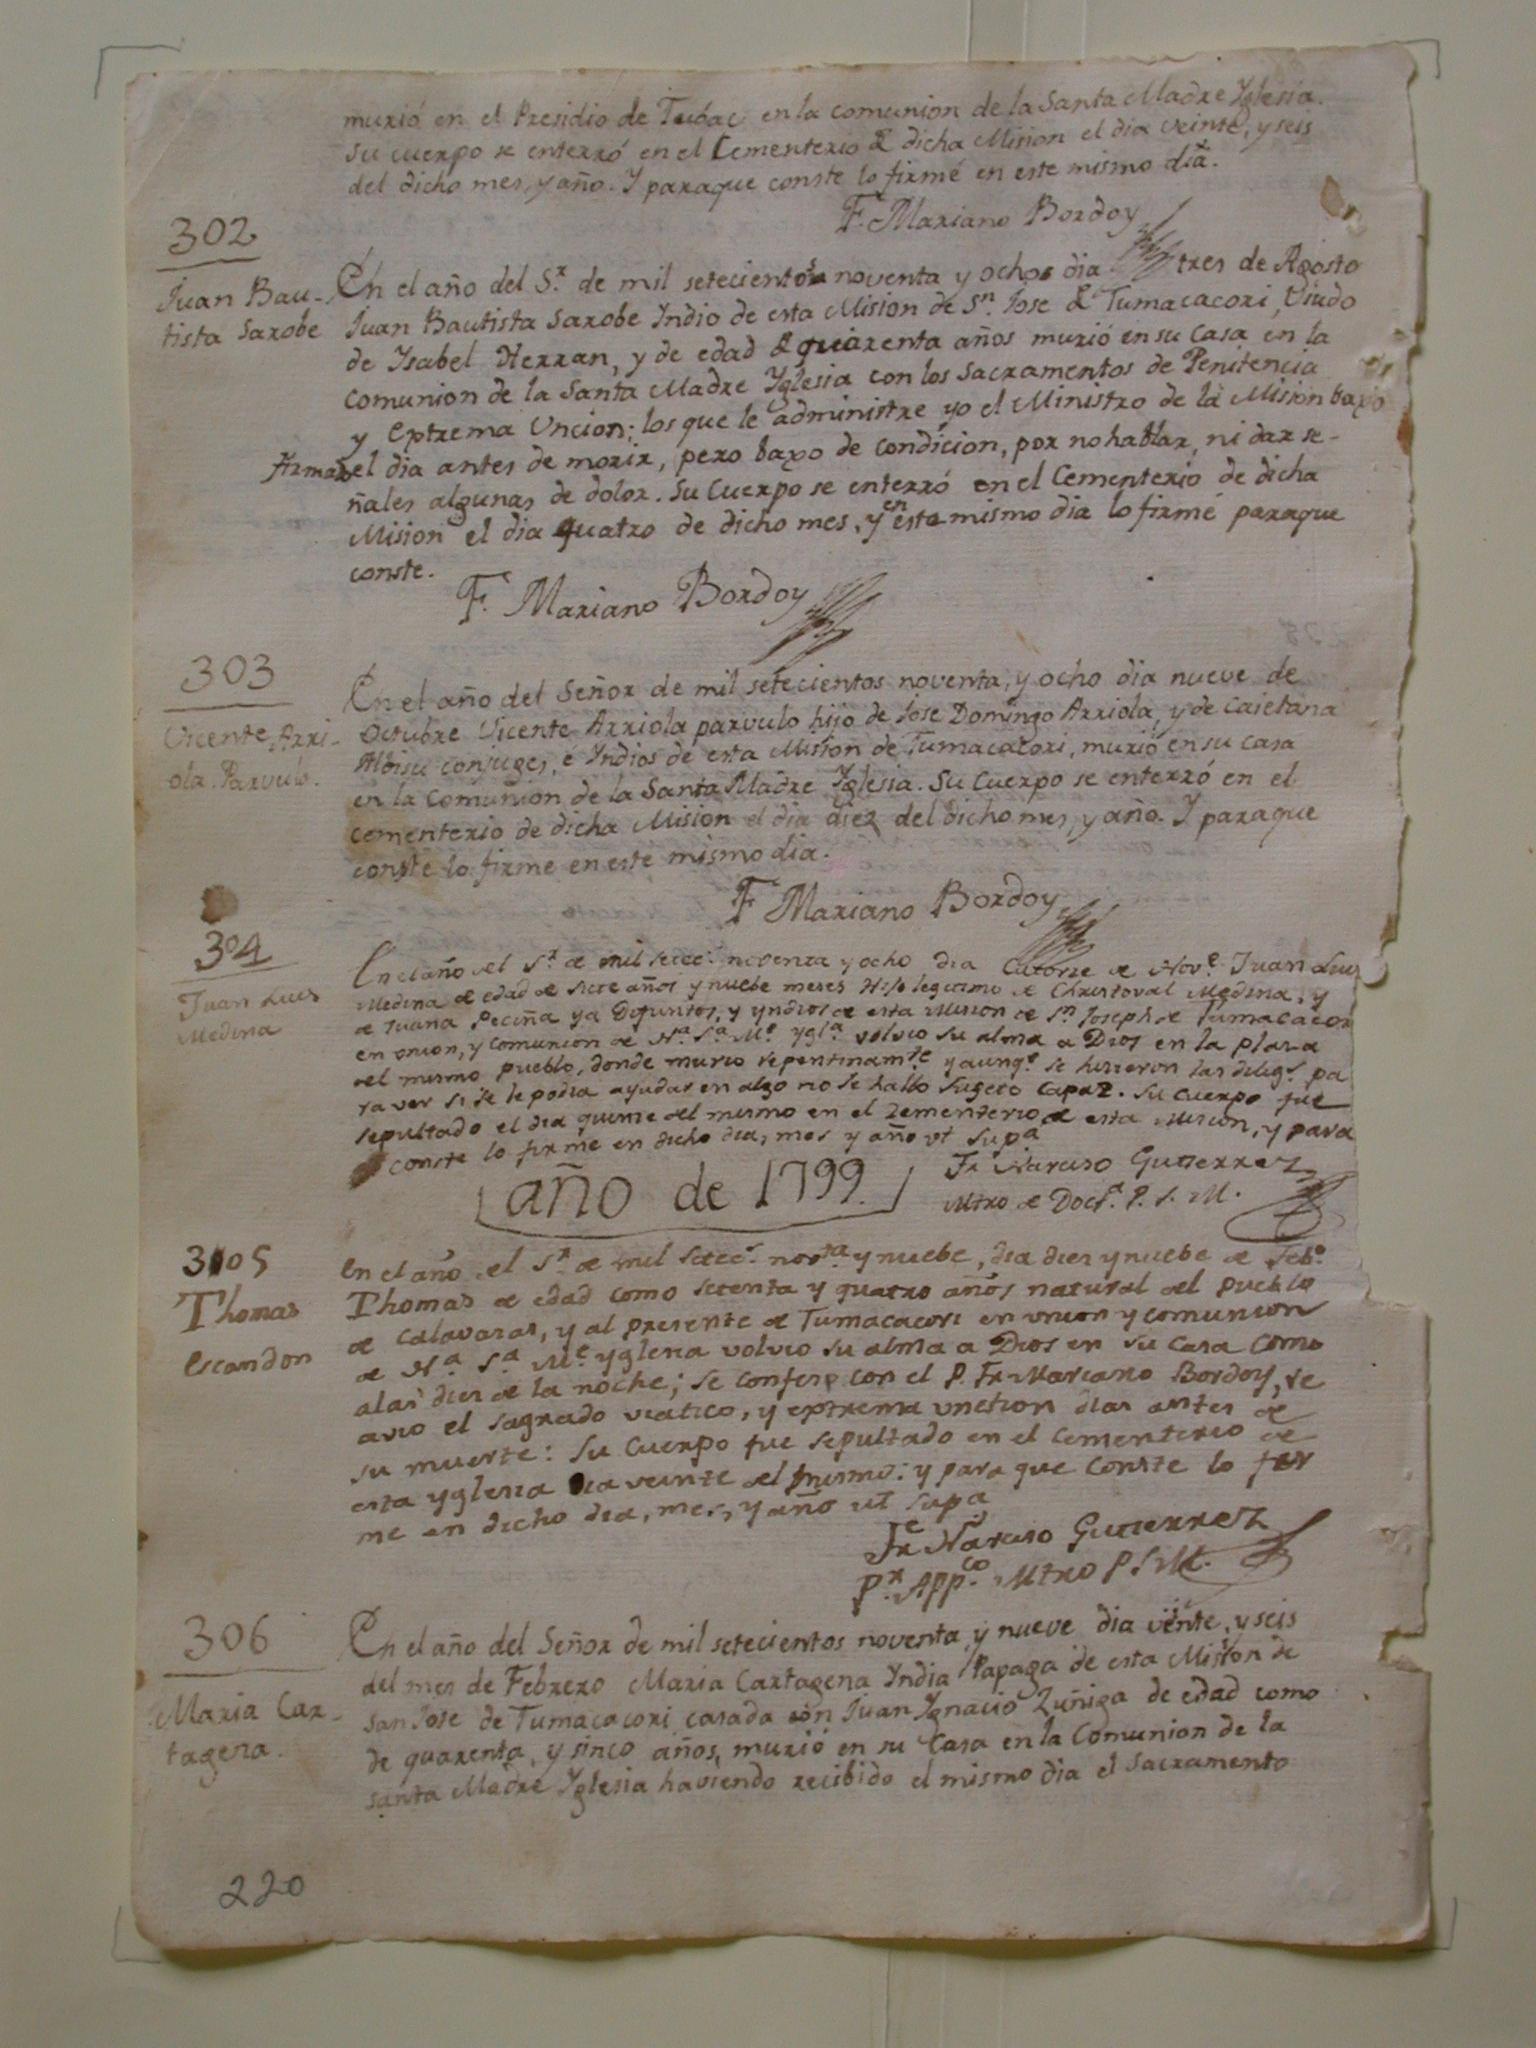 murió en el Presidio de Tubac en la comunion de la Santa Madre Yglesia.
Su cuerpo se enterró en el Cementerio de dicha Mision el dia veinte, y seis
del dicho mes, y año. Y paraque conste lo firmé en este mismo dia.
F. Mariano Bordoy
302
Juan Bau-
tista Sarobe
En el año del Sr. de mil setecientos noventa y ocho dia tres de Agosto
Juan Bautista Sarobe Yndio de esta Mision de Sn. Jose de Tumacacori, Viudo
de Ysabel Herran, y de edad de quarenta años murió en su casa en la
comunion de la Santa Madre Yglesia con los Sacramentos de Penitencia
y Extrema Uncion; los que le administre yo el Ministro de la Mision baxo
firmado el dia antes de morir, pero baxo de condicion, por no hablar, ni dar se-
ñales algunas de dolor. Su Cuerpo se enterró en el Cementerio de dicha
Mision el dia quatro de dicho mes, y en este mismo dia lo firmé paraque
conste.
F. Mariano Bordoy
303
Vicente Arri-
ola. Parvulo.
En el año del Señor de mil setecientos noventa, y ocho dia nueve de
Octubre Vicente Arriola parvulo hijo de Jose Domingo Arriola, y de Caietana
conjuges, é Yndios de esta Mision de Tumacacori, murió en su casa
en la Comunion de la Santa Madre Yglesia. Su Cuerpo se enterró en el
cementerio de dicha Mision el dia diez del dicho mes, y año. Y paraque
conste lo firme en este mismo dia.
F Mariano Bordoy
304
Juan Luis
Medina
En el año del Sr. de mil setec.s noventa y ocho dia Catorze de Nove. Juan Luis
Medina de edad de siete años y nuebe meses Hijo legitimo de Christoval Medina, y
de Juana Peciña ya Difuntos, y yndios de esta Mision de Sn. Joseph de Tumacacori
en union, y comunion de Na. Sa. Me. ygla. volvio su alma a Dios en la plaza
del mismo pueblo, donde murio repentinamte. y aunqe. se hizieron las diligs. pa
ra ver si se le podia ayudar en algo no se hallo Sugeto Capaz. Su Cuerpo fue
sepultado el dia quinze del mismo en el Zementerio de esta Mision, y para
conste lo firme en dicho dia, mes y año ut supa.
Fr. Narciso Gutierrez
Mtro de Docta. P. S. M.
año de 1799.
3105
Thomas
Escandon
En el año del Sr. de mil setecs. novta. y nuebe, dia diez y nuebe de Febo.
Thomas de edad como setenta y quatro años natural del pueblo
de Calavazas, y al presente de Tumacacori en union y comunion
de Na. Sa. Me. yglesia volvio su alma a Dios en su casa como
a las diez de la noche; se confeso con el P. Fr. Mariano Bordoy, re
civio el sagrado viatico, y extrema unction dias antes de
su muerte: Su Cuerpo fue sepultado en el cementerio de
esta yglesia dia veinte del mismo: y para que Conste lo fir
me en dicho dia, mes, y año ut supa.
Fr. Narciso Gutierrez
Pr. Appco. Mtro P. S. M.
306
Maria Car-
tagena.
En el año del Señor de mil setecientos noventa y nueve dia veinte, y seis
del mes de Febrero Maria Cartagena Yndia Papaga de esta Mision de
San Jose de Tumacacori casada con Juan Ygnacio Zuñiga de edad como
de quarenta, y sinco años, murió en su Casa en la Comunion de la
santa Madre Yglesia haviendo recibido el mismo dia el Sacramento
220